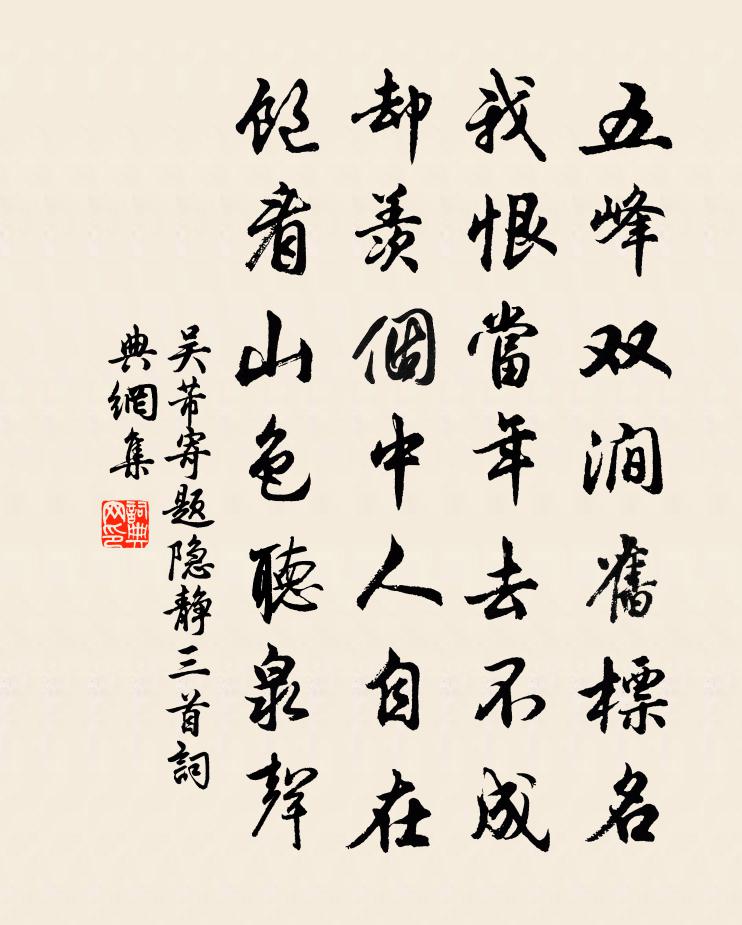 五峰双澗舊標名
我恨當年去不成
却羨個中人自在
飽看山色聽泉聲
吴芾寄题隐静三首詞
典網集
詞典
网印